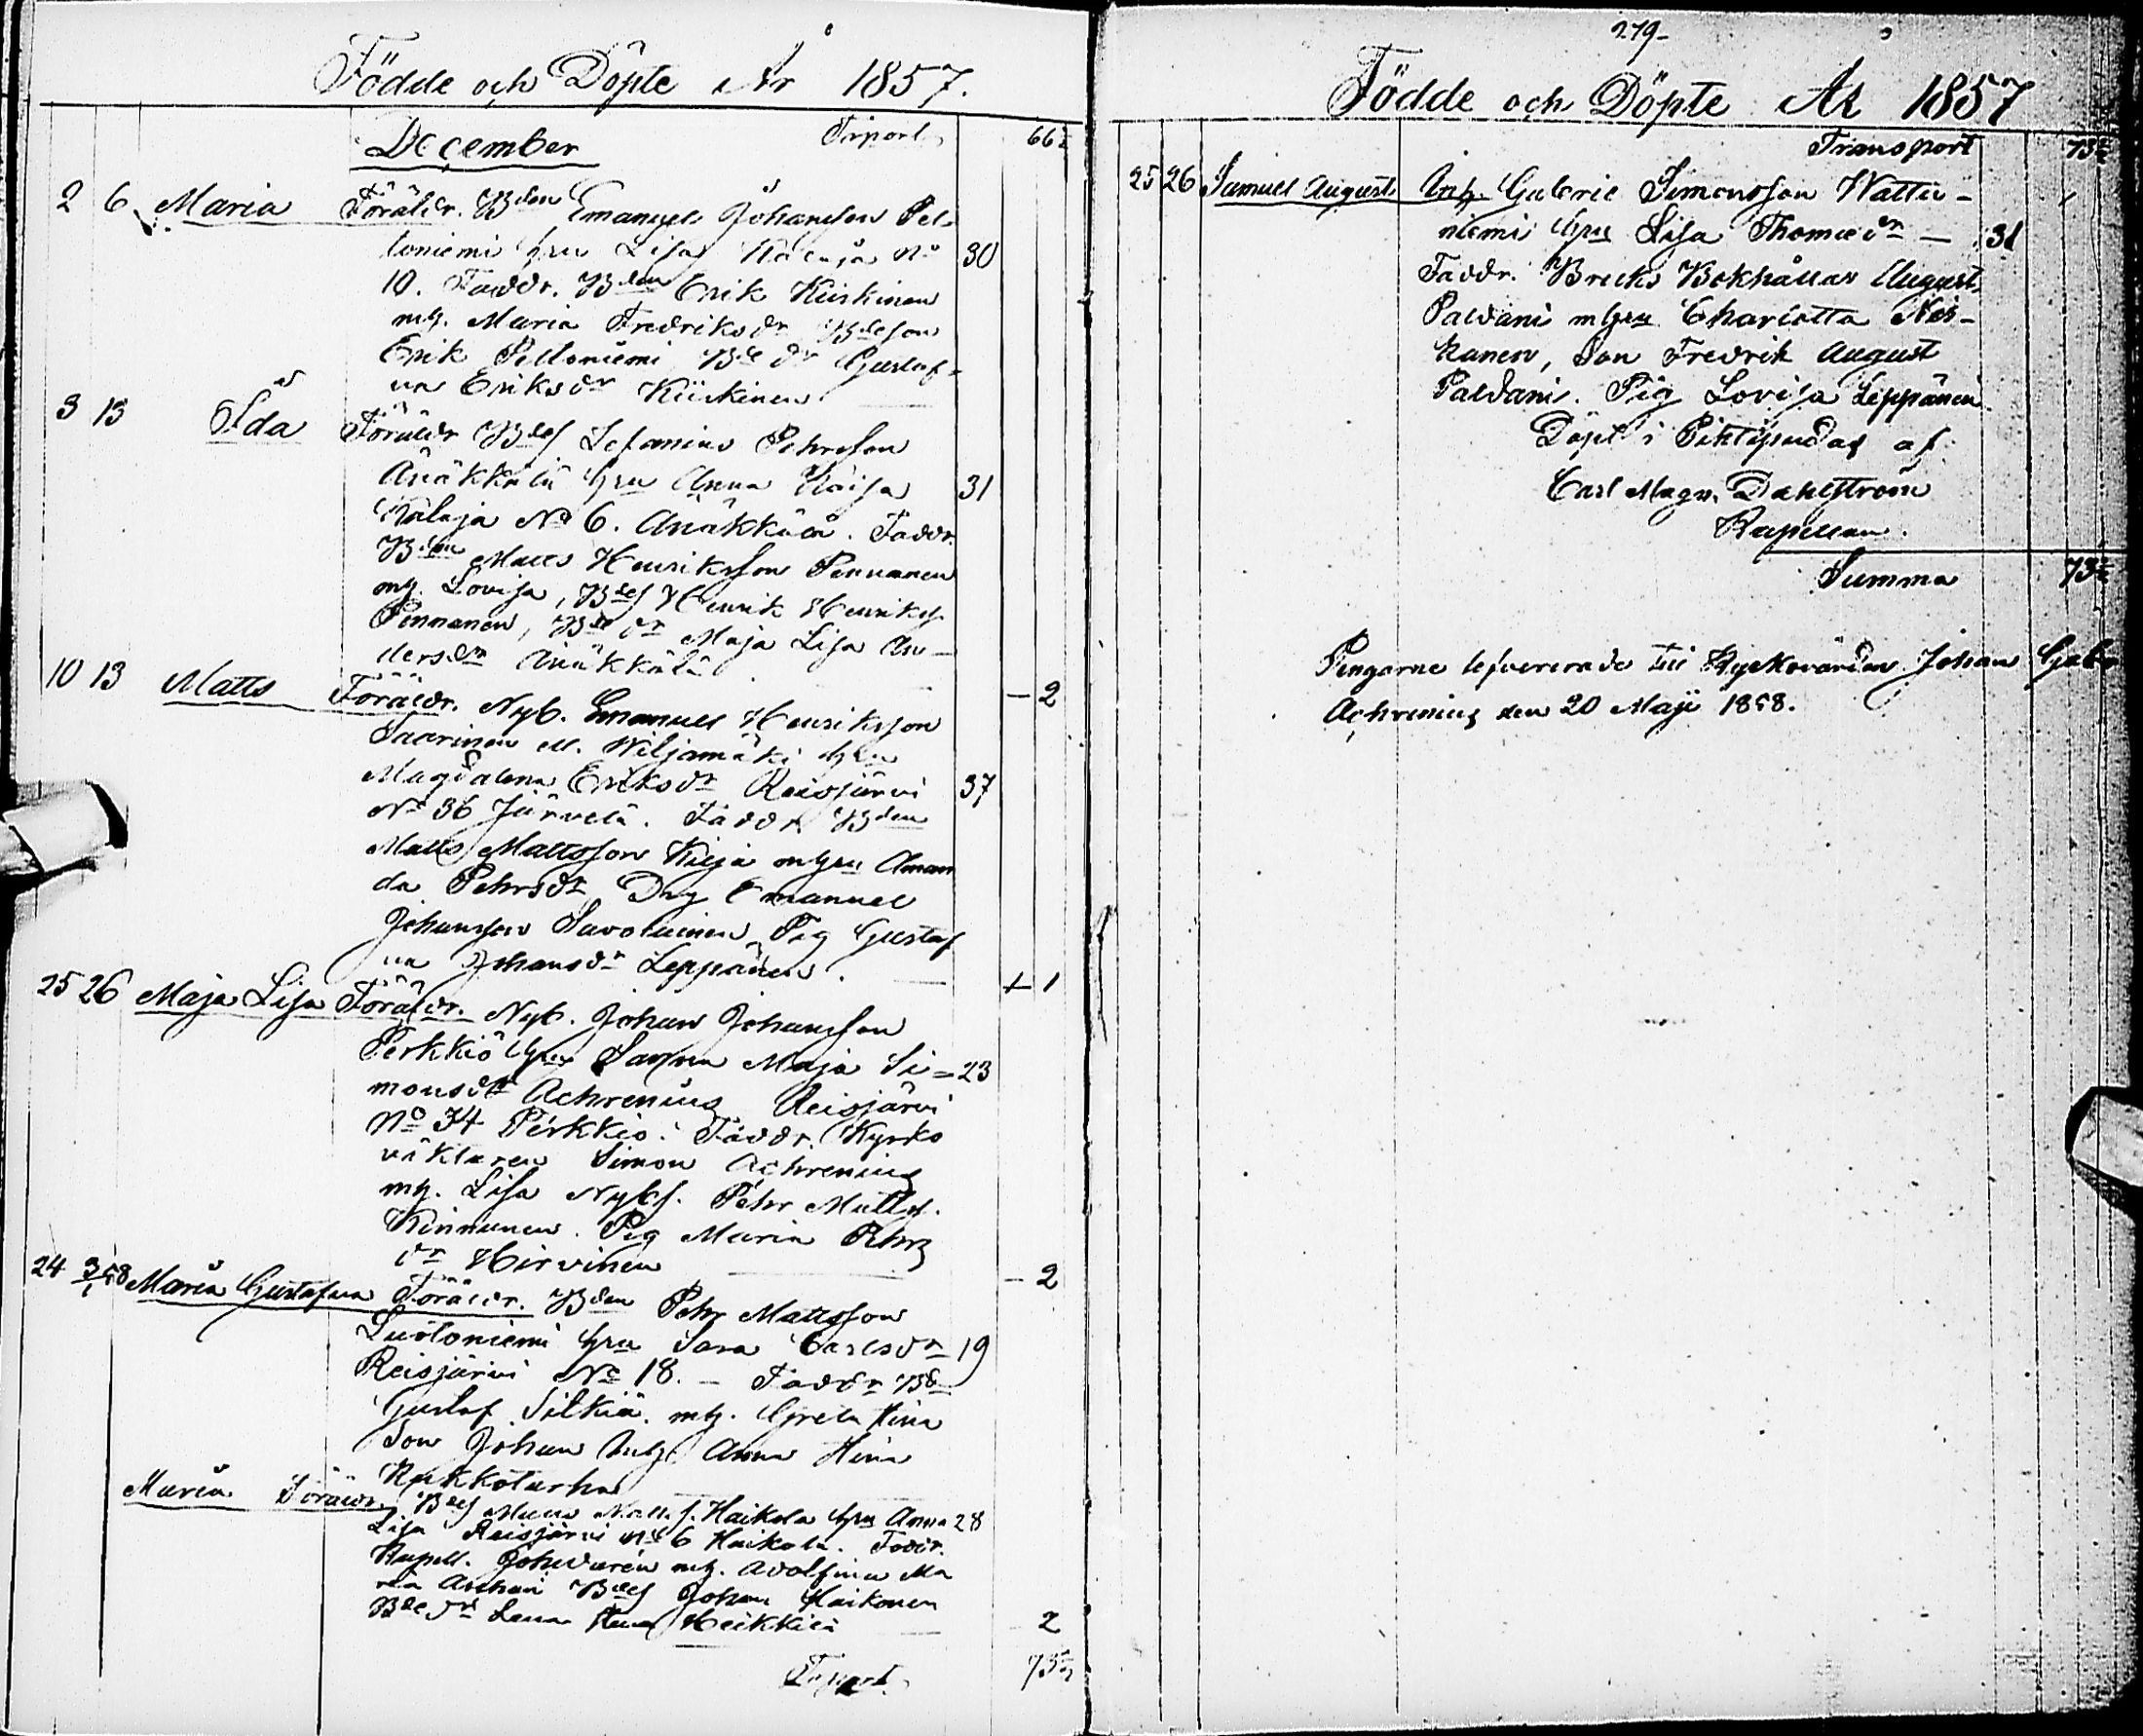 Födde och Döpte År 1857.
December Trsport 66
2 6 Maria Föräldr. Bden Emanuel Johansson Pel-
toniemi hru Lisa Kalaja No 30
10. Faddr. Bden Erik Kiiskinen
mh. Maria Fredriksdr Bdeson
Erik Peltoniemi Bdedr Gustaf-
va Eriksdr Kiiskinen
3 13 Ida Föräldr Bdes Pehrsson
Änäkkälä hru Anna Kaisa 31
Kalaja No 6. Änäkkälä. Faddr.
Bden Matts Henriksson Pennanen
mh. Lovisa, Bdes Henrik Henriks.
Pennanen, Bdedr Maja Lisa An-
dersdr Änäkkälä
— 2
10 13 Matts Föräldr. Nyb. Emanuel Henriksson
Saarinen M. Wiljamäki hru
Magdalena Eriksdr Reisjärvi 37
No 36 Järvelä. Faddr. Bden
Matts Mattsson Kilja mhru Aman
da Pehrsdr, Drg Emanuel
Johansson Savolainen Pig Gustaf
va Johansdr Leppänen.
+ 1
25 26 Maja Lisa Föräldr. Nyb. Johan Johansson
Perkkiö hru Sanna Maja Si= 23
monsdr Achrenius Reisjärvi
No 34 Perkkiö. Faddr. Kyrko
väktaren Simon Achrenius
mh. Lisa Nybs. Pehr Matts.
Kinnunen. Pig Maria Pehrs
dr Hirvinen
— 2
24 3/1 58 Maria Gustafva Föräldr. Bden Pehr Mattsson
Luotoniemi hru Sara Carlsdr 19
Reisjärvi No 18. — Faddr Bd
Gustaf Silkiä mh. Greta Stina
Son Johan Anna Stina
Kukkotarha
Maria Föräldr. Bdes Matts Matts. Haikola hru Anna 28
Lisa Reisjärvi No 6 Haikola. Faddr.
Kapell. mh. Adolfina Ma
ria Bdes Johan Haikonen
Bdedr Heikkilä
2
Trsport 73
279-
Födde och Döpte År 1857
Transport 73
25 26 Samuel August Inh. Gabriel Simonsson Wattu-
niemi hru Lisa Thomædr — 31
Faddr. Bruks Bokhållar August
Paldani mhru Charlotta Nis-
kanen, Son Fredrik August
Paldani. Pig Lovisa Leppänen
Döpt i Pihtipudas af
Carl Magn. Dahlström
Kapellan.
Summa 73
Pengarne lefvererade till Kyrkovärden Johan Gabr
Achrenius den 20 Maji 1858.